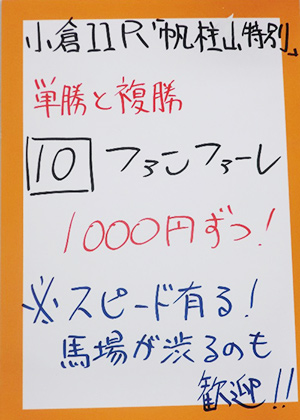 小倉11R「帆柱山特別」
単勝と複勝
10 ファンファーレ
1000円ずつ!
※スピード有る!
馬場が渋るのも
歓迎!!